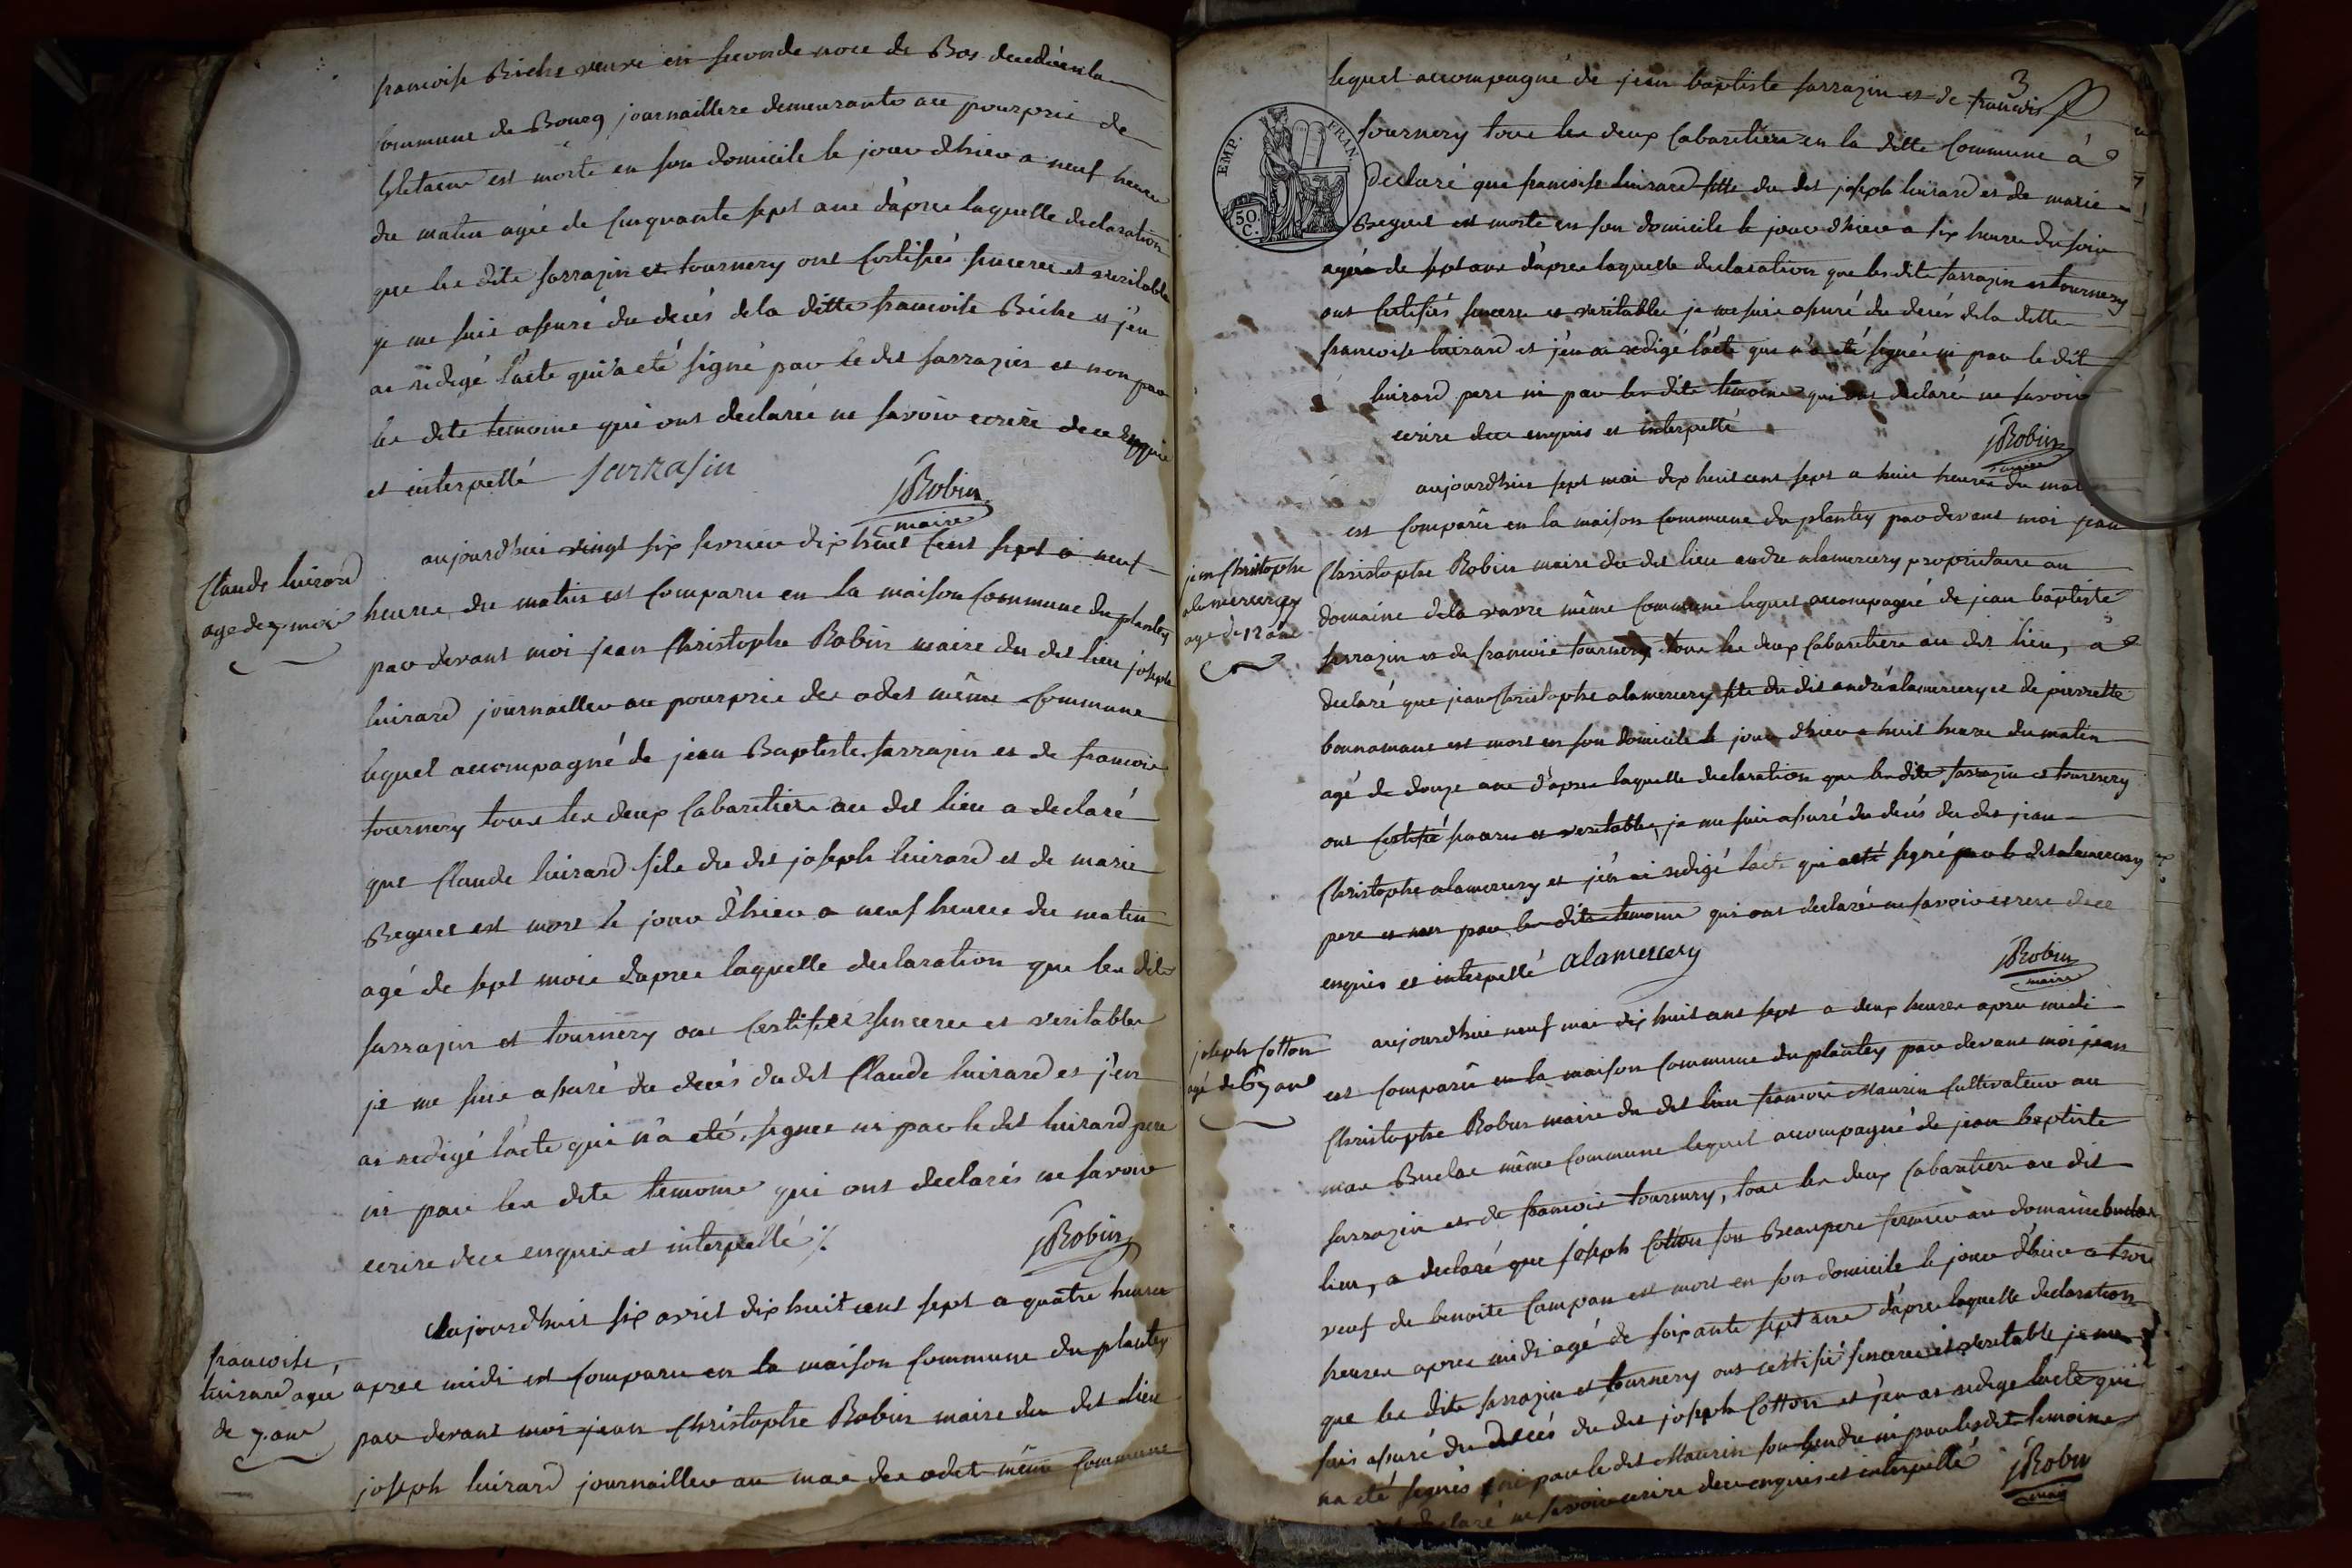 francoise Biche veuve en seconde noce de Bos decedé en la
commune de Bourg journailliere demeurante au pourprie de
Gletaeu est morte en son domicile le jour dhier a neuf heures
du matin agée de cinquante sept ans d'après laquelle declaration
que les dits sarrazin et tournery ont certifiés sincere et veritable
je me suis assuré du decés de la ditte francoise Biche et j'en
ai redigé l'acte qui a eté signé par le dit sarrazin et non par
les dits temoins qui ont declaré ne savoir ecrire de ce enquis
et interpellé sarrasin
JRobin
maire
Claude luirard
age de 7 mois
aujourdhui vingt six fevrier dix huit cent sept a neuf
heures du matin est comparu en la maison commune du plantey
par devant moi jean Christophe Robin maire du dit lieu joseph
luirard journaillier au pourprie des odet même commune
lequel accompagné de jean Baptiste sarrazin et de francois
tournery tous les deux cabaretiers au dit lieu a declaré
que Claude luirard fils du dit joseph luirard et de marie
Beguet est mort le jour d'hier a neuf heures du matin
agé de sept mois d'apres laquelle declaration que les dits
sarrazin et tournery ont certifiés sinceres et veritables
je me suis assuré du decés du dit Claude luirard et j'en
ai redigé l'acte qui n'a eté signée ni par le dit luirard pere
ni par les dits temoins qui ont declarés ne savoir
ecrire de ce enquis et interpellé %
JRobin
francoise
luirard ageé
de 7 ans
Aujourdhuit six avril dix huit cent sept a quatre heures
apres midi est comparu en la maison commune du plantey
par devant moi jean Christophe Robin maire du dit lieu
joseph luirard journaillier au mas des odet même commune
3
lequel accompagné de jean baptiste sarrazin et de francois
EMP. FRAN.
50. C.
tournery tous les deux cabaretiers en la ditte commune a
declaré que francoise luirard fille du dit joseph luirard et de marie
Beguet est morte en son domicile le jour dhier a six heures du soir
agée de sept ans d'apres laquelle declaration que les dits sarrazin et tournery
ont certifiés sincere et veritable je me suis assuré du decés de la ditte
francoise luirard et j'en ai redigé l'acte qui n'a eté signée ni par le dit
luirard pere ni par les dits temoins qui ont declaré ne savoir
ecrire de ce enquis et interpellé
JRobin
maire
jean Christophe
alamercery
agé de 12 ans
aujourdhui sept mai dix huit cent sept a huit heures du matin
est comparû en la maison commune du plantey par devant moi jean
Christophe Robin maire du dit lieu andre alamercery propriétaire au
domaine de la vavre même commune lequel accompagné de jean baptiste
sarrazin et de francois tournery tous les deux cabaretiers au dit lieu, a
declaré que jean Christophe alamercery fils du dit andré alamercery et de pierrette
bonnamant est mort en son domicile le jour dhier a huit heures du matin
agé de douze ans d'apres laquelle declaration que les dits sarrazin et tournery
ont certifié sincere et veritable, je me suis assuré du decés du dit jean
Christophe alamercery et j'en ai redigé l'acte qui a eté signé par le dit alamercery
pere et non par les dits temoins qui ont declaré ne savoir ecrire de ce
enquis et interpellé alamercery
JRobin
maire
joseph Cotton
agé de 67 ans
aujourdhui neuf mai dix huit cent sept a deux heures apres midi
est comparû en la maison commune du plantey par devant moi jean
Christophe Robin maire du dit lieu francois Maurin cultivateur au
mas Buclas même commune lequel accompagné de jean baptiste
sarrazin et de francois tournery, tous les deux cabaretiers au dit
lieu, a declaré que joseph Cotton son Beaupere fermier au domaine buclas
veuf de benoite Campan est mort en son domicile le jour dhier a trois
heures apres midi agé de soixante sept ans d'apres laquelle declaration
que les dits sarrazin et tournery ont certifié sinceres et veritable je me
suis assuré du decés du dit joseph Cotton et j'en ai redigé l'acte qui
n'a eté signés ni par le dit Maurin son gendre ni par les dit temoins
declaré ne savoir ecrire de ce enquis et interpellé
JRobin
maire